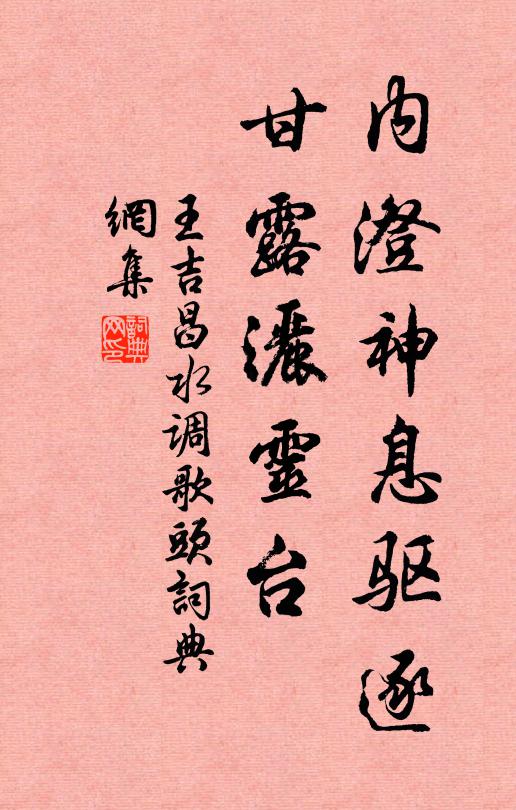 内澄神息驱逐
甘露灑靈台
王吉昌水调歌頭詞典
網集
詞典
网印